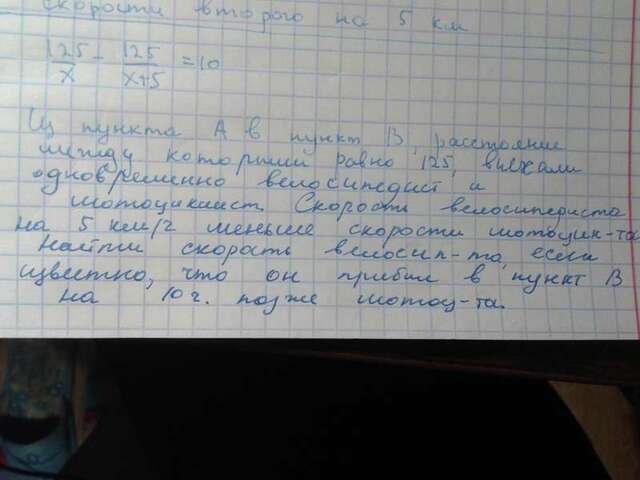 скорости второго на 5 км
125/x - 125/x+5 = 10
Из пункта А в пункт В, расстояние
между которыми равно 125, выехали
одновременно велосипедист и
мотоциклист. Скорость велосипедиста
на 5 км/ч меньше скорости мотоцик-та
Найти скорость велосип-та, если
известно, что он прибыл в пункт В
на 10 ч. позже мотоц-та.